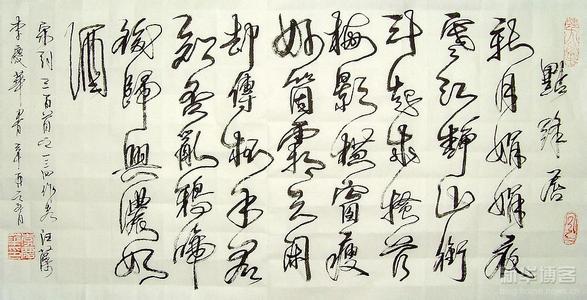 點絳唇
新月娟娟夜
寒江靜山銜
斗起來搔首
梅影橫窗瘦
好箇霜天閑
却傳杯手君
知否亂鴉啼
後歸興濃如
酒
宋詞三百首之一三四作者汪藻
李慶華書
新华博客